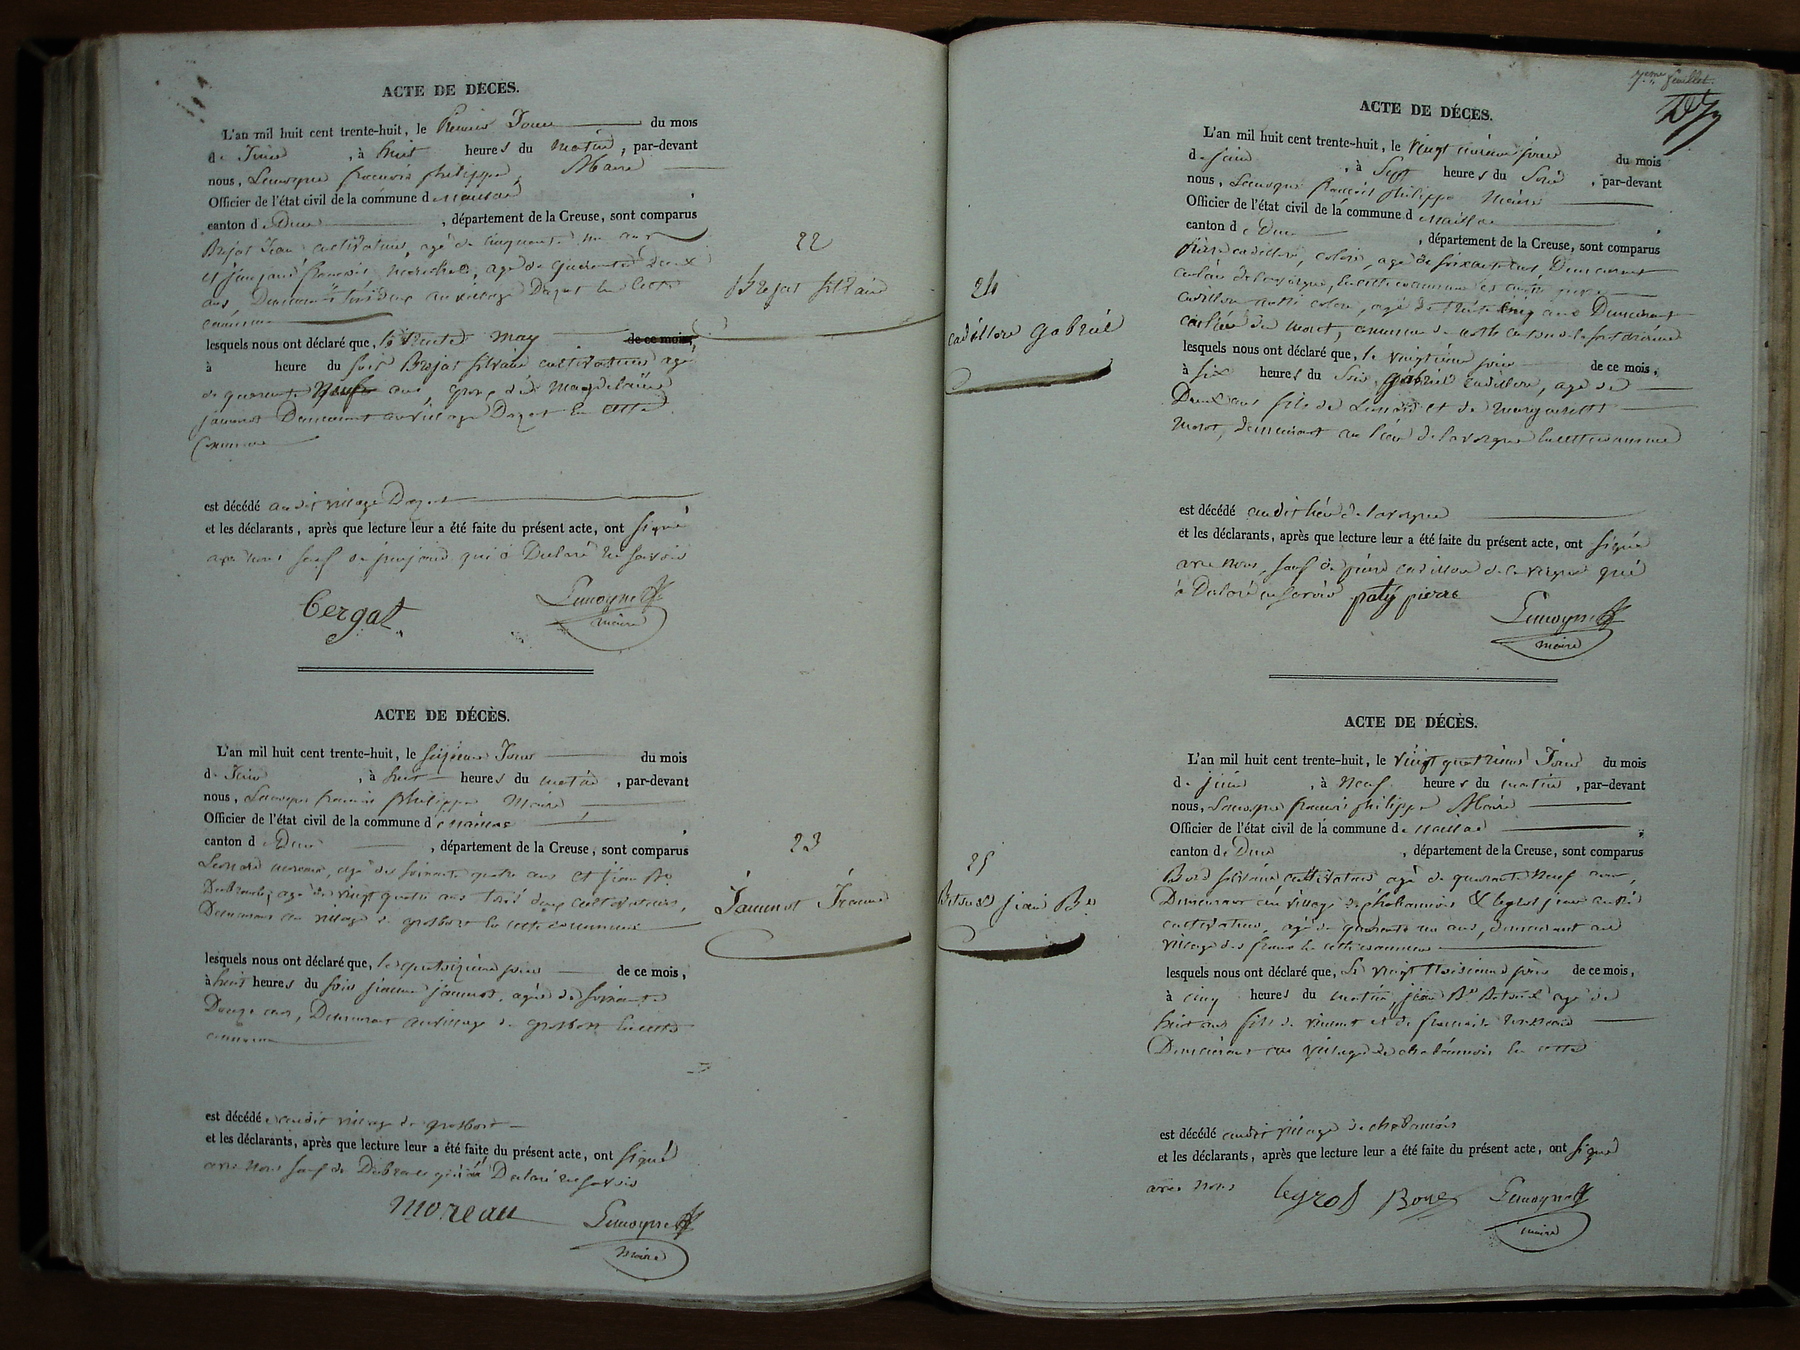 ACTE DE DÉCÈS.
L'an mil huit cent trente-huit, le Premier Jour du mois
de Juin, à huit heures du matin, par-devant
nous, Lemoyne françois philippe, Maire
Officier de l'état civil de la commune de
canton de Dun, département de la Creuse, sont comparus
Brejat Jean cultivateur, agé de Cinquante un ans
et françois, agé de quarante Deux
ans Demeurant au village Dazat en Cette
commune
lesquels nous ont déclaré que, le trente may de ce mois,
à heure du soir Brejat silvain cultivateur agé
de quarante Neuf ans époux de Magdelaine
jammot Demeurant au village Dazat en cette
Commune
est décédé audit village Dazat
et les déclarants, après que lecture leur a été faite du présent acte, ont signé
avec nous sauf de qui a Déclaré ne savoir
bergat Lemoyne
maire
22
Brejat silvain
ACTE DE DÉCÈS.
L'an mil huit cent trente-huit, le seizieme Jour du mois
de Juin, à huit heures du matin, par-devant
nous, Lemoyne francois philippe Maire
Officier de l'état civil de la commune de
canton de Dun, département de la Creuse, sont comparus
Leonard moreau, agé de soixante quatre ans et jean Bte
agé de vingt quatre ans tous deux cultivateurs,
Demeurant au village de grosbost en cette commune
lesquels nous ont déclaré que, le quatorzième jour de ce mois,
à huit heures du soir jeanne jammot, agée de soixante
Douze ans, Demeurant au village de grosbost en cette
commune
est décédé audit village de grosbost
et les déclarants, après que lecture leur a été faite du présent acte, ont signé
avec nous sauf de qui a Déclaré ne savoir
moreau Lemoyne
Maire
23
Jammot Jeanne
7eme feuillet.
ACTE DE DÉCÈS.
L'an mil huit cent trente-huit, le vingt unième jour du mois
de juin, à Sept heures du Soir, par-devant
nous, Lemoyne françois philippe Maire
Officier de l'état civil de la commune de
canton de Dun, département de la Creuse, sont comparus
pierre cadillon, colon, agé de soixante ans, Demeurant
au lieu de lavergne, en cette commune et
cadillon aussi colon, agé de trente cinq ans Demeurant
au lieu du
lesquels nous ont déclaré que, le vingtième jour de ce mois,
à six heures du Soir, gabriel cadillon, agé de
Deux ans fils de Leonard et de margueritte
morot, demeurant au lieu de lavergne en cette commune
est décédé audit lieu de lavergne
et les déclarants, après que lecture leur a été faite du présent acte, ont signé
avec nous, sauf de pierre cadillon de lavergne qui
a Déclaré ne savoir paty pierre
Lemoyne
maire
24
cadillon gabriel
ACTE DE DÉCÈS.
L'an mil huit cent trente-huit, le vingt quatrieme Jour du mois
de juin, à Neuf heures du matin, par-devant
nous, Lemoyne francois philippe Maire
Officier de l'état civil de la commune de
canton de Dun, département de la Creuse, sont comparus
silvain cultivateur agé de quarante Neuf ans,
Demeurant au village de chabannois & legros jean aussi
cultivateur, agé de quarante un ans, demeurant au
village des en cette commune
lesquels nous ont déclaré que, le vingt troisieme jour de ce mois,
à cinq heures du matin, jean Bte agé de
huit ans fils de vincent et de francoise
Demeurant au village de chabannois en cette
est décédé audit village de chabannois
et les déclarants, après que lecture leur a été faite du présent acte, ont signé
avec nous legros Boyer Lemoyne
maire
25
jean Bte